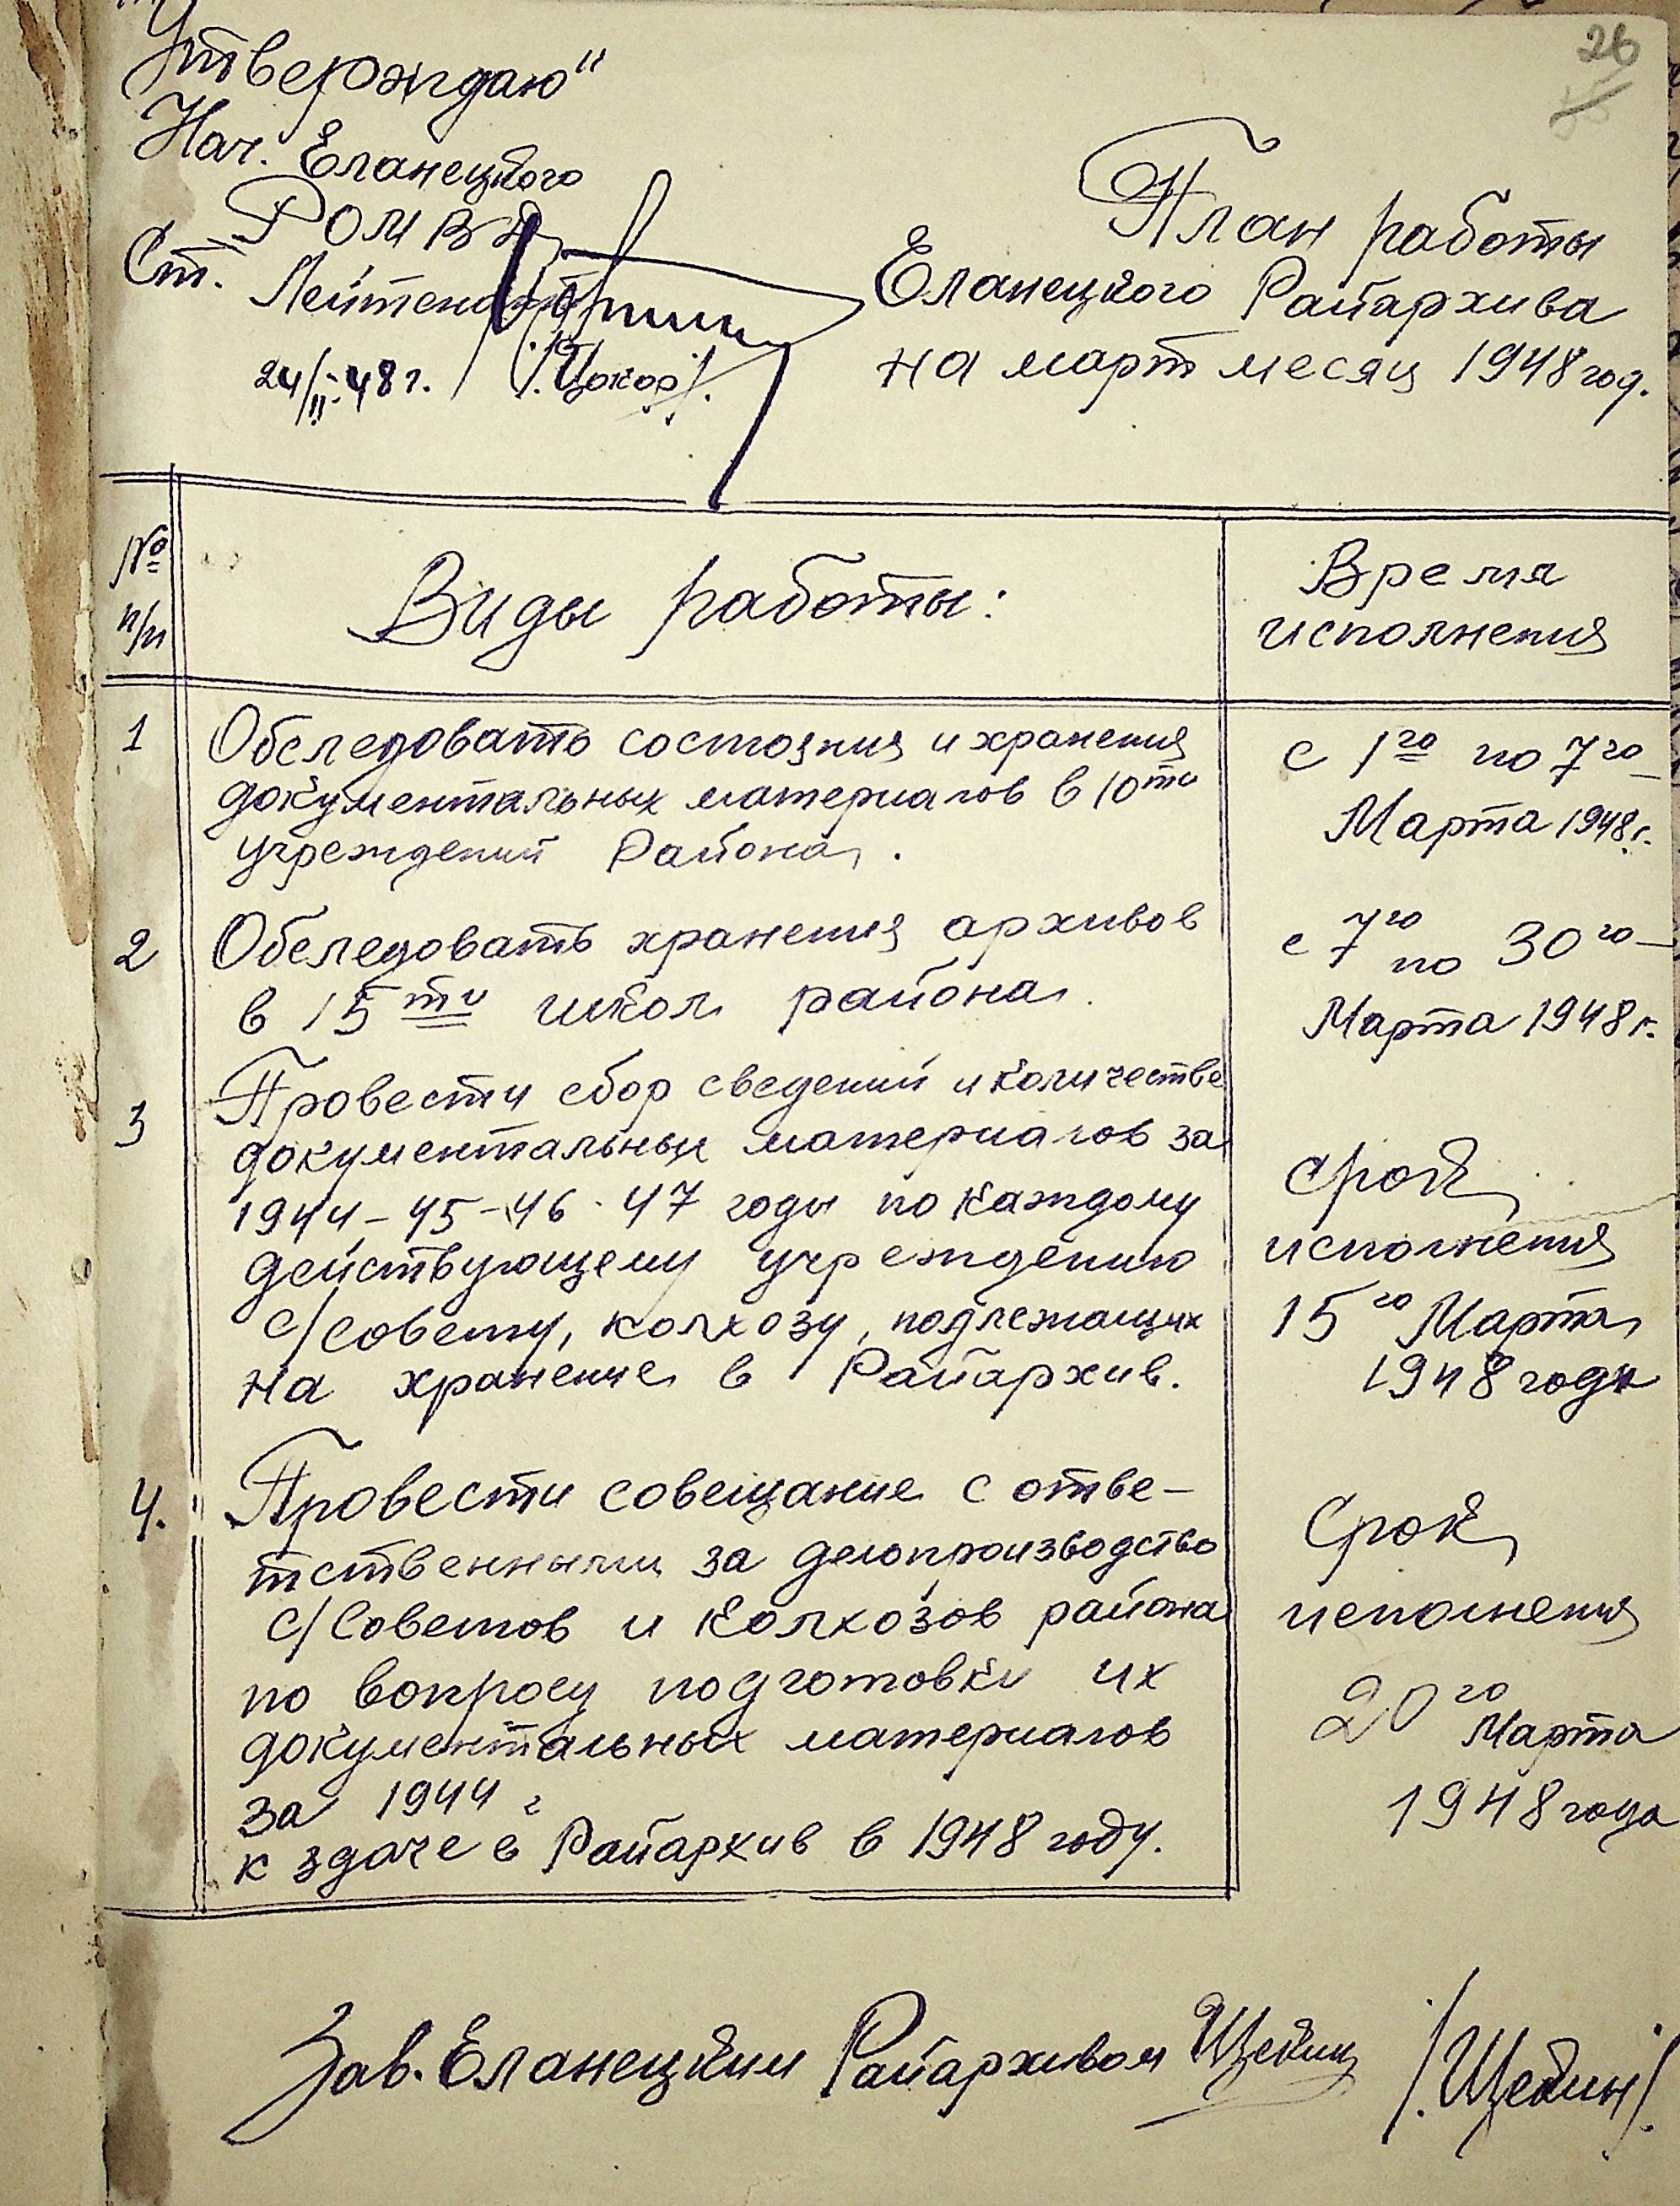 26
"Утверждаю"
Нач. Еланецкого
РО МВД
Ст. Лейтенант
24/II-48 г. /.Цокор/.
План работы
Еланецкого Райархива
на март месяц 1948 год.
№
п/п
Виды работы:
Время
исполнения
1
Обследовать состояния и хранения
документальных материалов в 10ти
учреждений Района.
с 1го по 7го
Марта 1948 г.
2
Обследовать хранения архивов
в 15ти школ района.
с 7го по 30го
Марта 1948 г.
3
Провести сбор сведений и количестве
документальных материалов за
1944-45-46-47 годы по каждому
действующему учреждению
с/совету, колхозу, подлежащих
на хранение в Райархив.
срок
исполнения
15го Марта
1948 года
4.
Провести совещание с отве-
тственными за делопроизводство
с/Советов и колхозов района
по вопросу подготовки их
документальных материалов
за 1944 г
к здаче в Райархив в 1948 году.
Срок
исполнения
20го
Марта
1948 года
Зав. Еланецким Райархивом /.Щекин/.